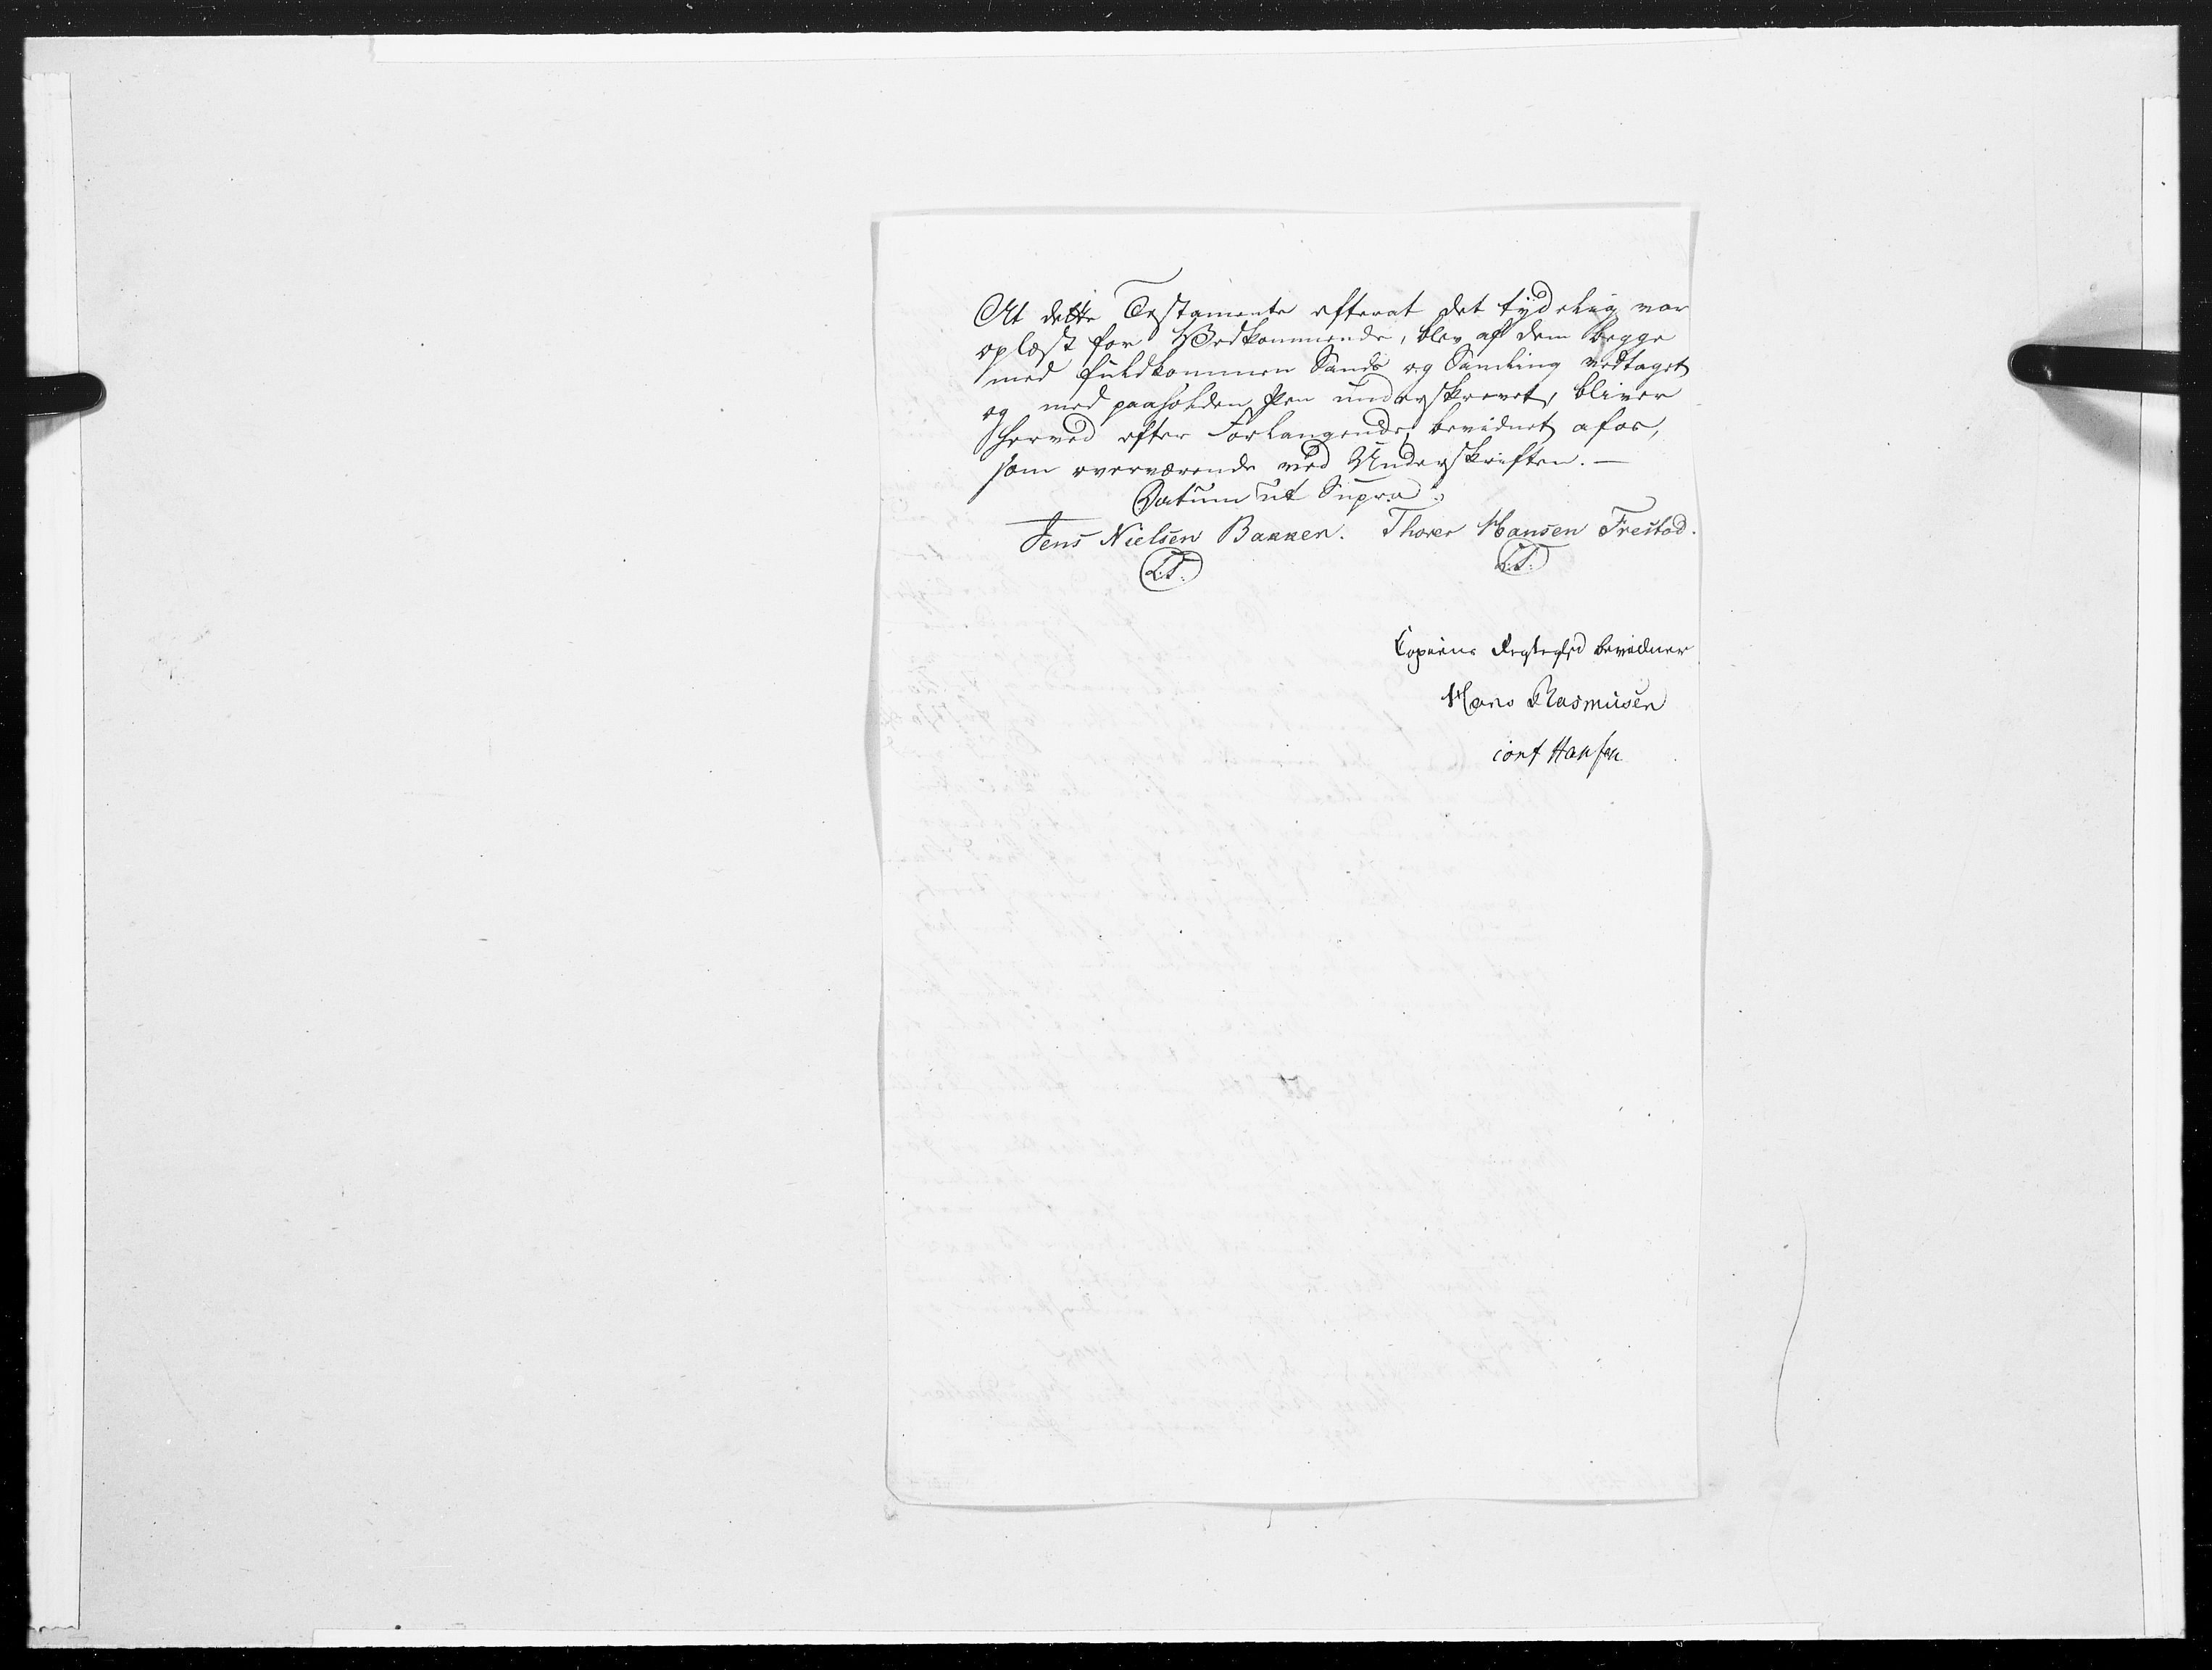 At dette Testamente efterat det tydelig var
oplæst for Vedkommende, blev af dem begge
med fuldkommen Sands og Samling vedtaget
og med paaholden Pen underskrevet, bliver
herved efter Forlangende bevidnet af os,
som overværende ved Underskriften. —
Datum ut Supra.
Jens Nielsen Bakken. Thorer Hansen Frestad.
L.S. L.S.
Copiens Rigtighed bevidner
Hans Rasmusen
Hansen